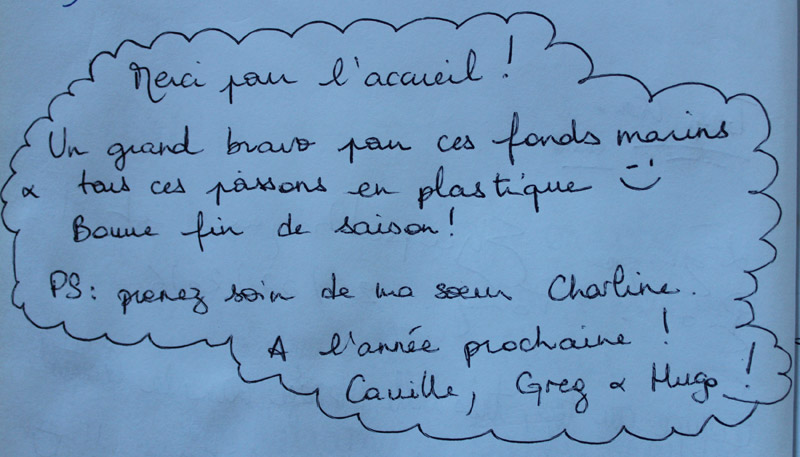 Merci pour l'accueil !
Un grand bravo pour ces fonds marins
& tous ces poissons en plastique
Bonne fin de saison !
PS : prenez soin de ma soeur Charline.
A l'année prochaine !
Camille, Greg & Hugo !